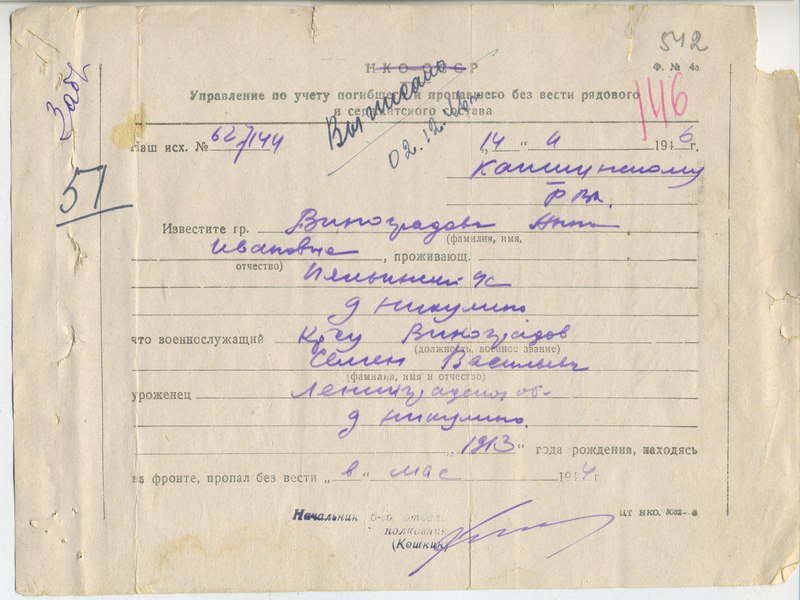 542
НКО СССР
Ф. № 4а
Управление по учету погибшего и пропавшего без вести рядового
и сержантского состава
146
Выписано
02.12.
Забч
Наш исх. № 62/144
„14 " 4 1946 г.
Капшинскому
РВК.
57
Известите гр. Виноградова Анна
(фамилия, имя,
Ивановна, проживающ.
отчество)
с/с
д Никулино
что военнослужащий Кр-ец Виноградов
(должность, военное звание)
Семен Васильев
(фамилия, имя и отчество)
уроженец Ленинградской об.
д Никулино.
„ 1913 " года рождения, находясь
на фронте, пропал без вести „в " мае 1944 г
Начальник 6-го отдела
полковник
(Кошкин)
ЦТ НКО. 3082—6